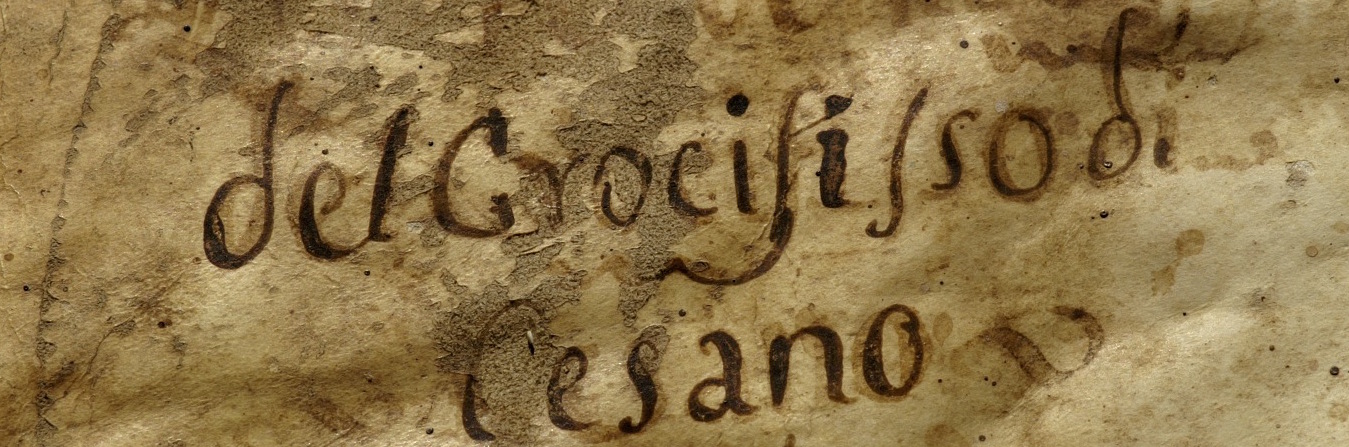 del Crocifisso di
Cesano